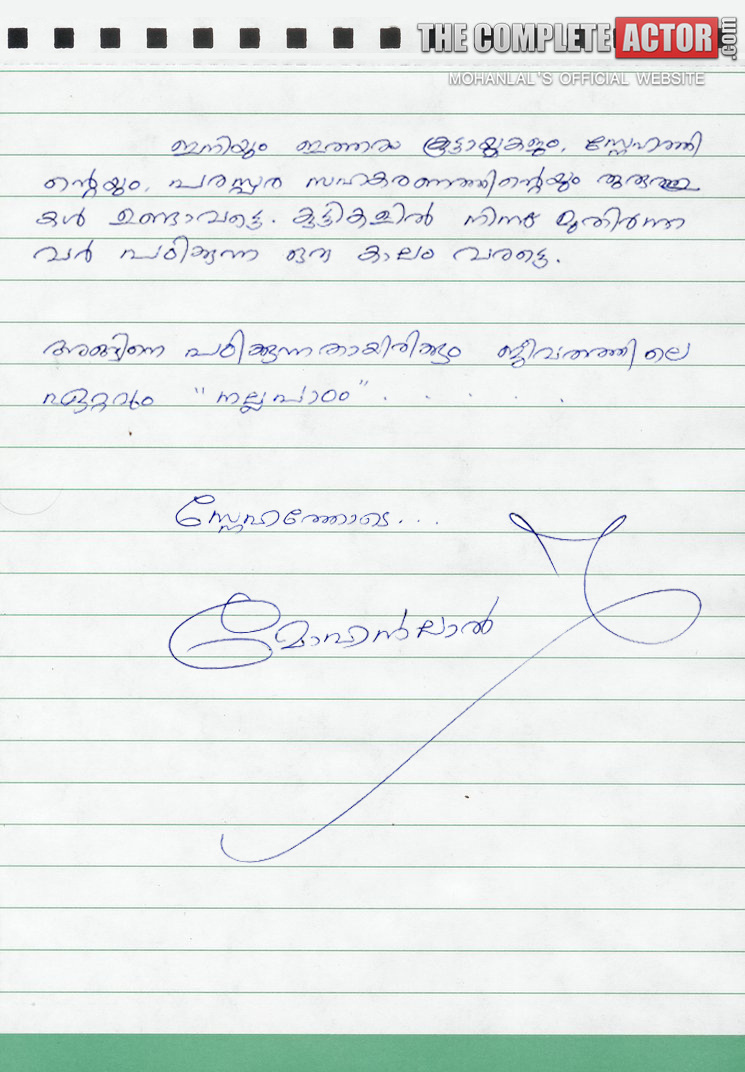 THE COMPLETE ACTOR .com
MOHANLAL'S OFFICIAL WEBSITE
ഇനിയും ഇത്തരം കൂട്ടായ്മകളും, സ്നേഹത്തി
ന്റെയും, പരസ്പര സഹകരണത്തിന്റെയും തുരുത്തു
കൾ ഉണ്ടാവട്ടെ. കുട്ടികളിൽ നിന്ന് മുതിർന്ന
വർ പഠിക്കുന്ന ഒരു കാലം വരട്ടെ.
അങ്ങിനെ പഠിക്കുന്നതായിരിക്കും ജീവിതത്തിലെ
ഏറ്റവും "നല്ലപാഠം" . . . . . .
സ്നേഹത്തോടെ...
മോഹൻലാൽ